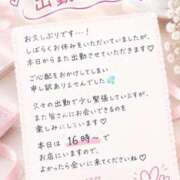 出勤♡
お久しぶりです…!
しばらくお休みをいただいていましたが、
本日からまた出勤させていただきます♡
ご心配をおかけしてしまい
申し訳ありませんでした
久々の出勤で少し緊張していますが、
また皆さんにお会いできるのを
楽しみにしています♡
本日は 16時〜で
お店にいますので、
よかったら会いに来てくださいね♡